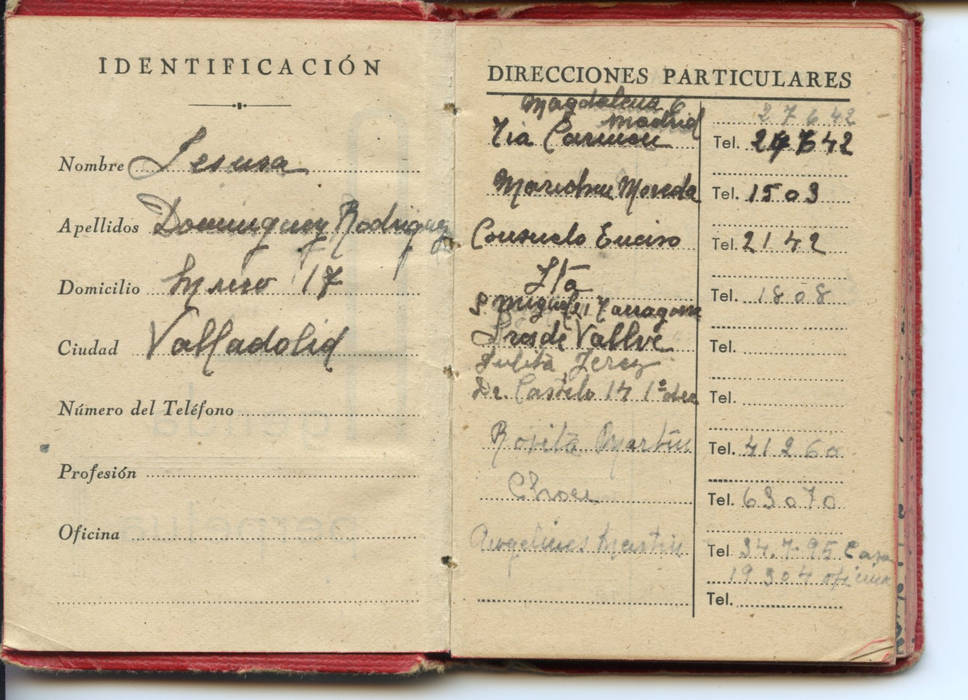 IDENTIFICACIÓN
Nombre Jesusa
Apellidos Dominguez Rodriguez
Domicilio 17
Ciudad Valladolid
Número del Teléfono
Profesión
Oficina
DIRECCIONES PARTICULARES
Magdalena 6 27642
Madrid
Tia Carmen Tel. 27642
Marichu Tel. 1503
Consuelo Enciso Tel. 2142
Tel. 1808
S. Miguel 21 Tarragona
Sras de Vallvé Tel.
Julita Jerez
Dr. Castelo 14 1º dcr Tel.
Rosita Martin Tel. 41260
Tel. 63070
Angelines Martin Tel 34.7.95 Casa
19304 oficina
Tel.